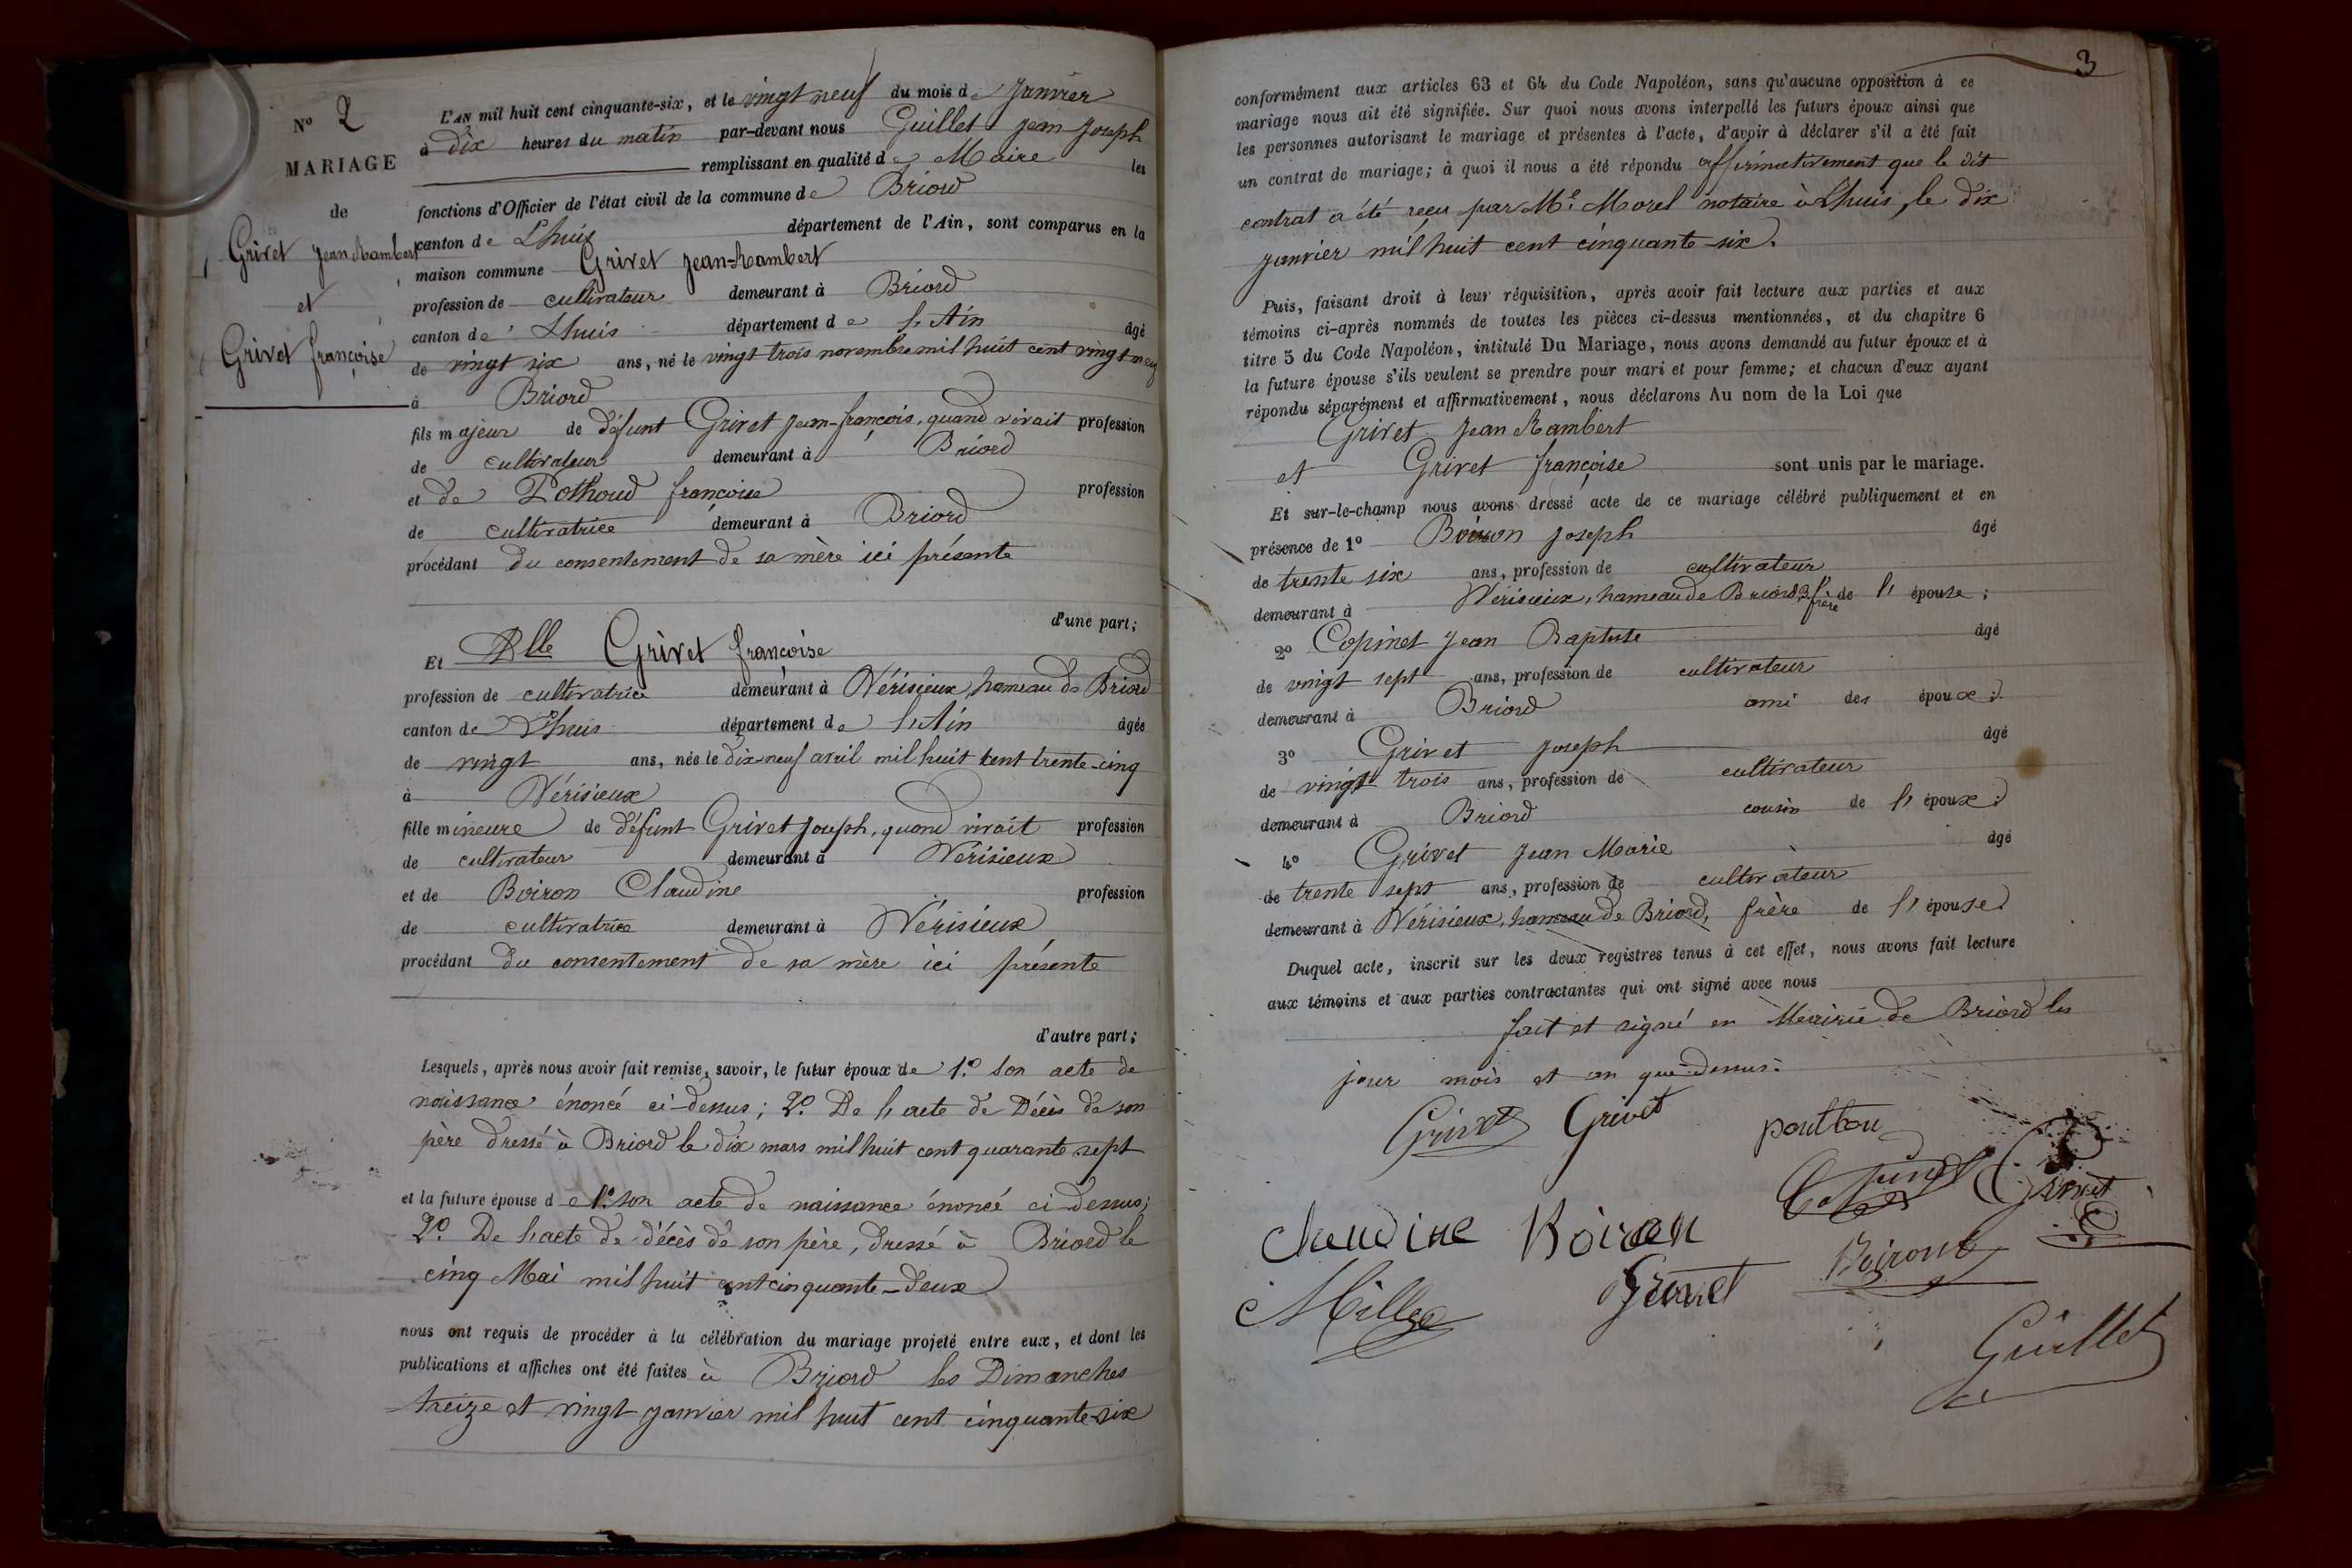 N° 2
MARIAGE
de
Grivet Jean Rambert
et
Grivet françoise
L'AN mil huit cent cinquante-six, et le vingt neuf du mois de Janvier
à dix heures du matin par-devant nous Guillet Jean Joseph
remplissant en qualité de Maire les
fonctions d'Officier de l'état civil de la commune de Briord
canton de Lhuis département de l'Ain, sont comparus en la
maison commune Grivet Jean-Rambert
profession de cultivateur demeurant à Briord
canton de Lhuis département de l'Ain âgé
de vingt six ans, né le vingt trois novembre mil huit cent vingt neuf
à Briord
fils majeur de défunt Grivet Jean-françois, quand vivait profession
de cultivateur demeurant à Briord
et de Pothoud françoise profession
de cultivatrice demeurant à Briord
procédant du consentement de sa mère ici présente
d'une part;
Et Dlle Grivet françoise
profession de cultivatrice demeurant à Vérisieux, hameau de Briord
canton de Lhuis département de l'Ain âgée
de vingt ans, née le dix-neuf avril mil huit cent trente-cinq
à Vérisieux
fille mineure de défunt Grivet Joseph, quand vivait profession
de cultivateur demeurant à Vérisieux
et de Boiron Claudine profession
de cultivatrice demeurant à Vérisieux
procédant du consentement de sa mère ici présente
d'autre part;
Lesquels, après nous avoir fait remise, savoir, le futur époux de 1.° son acte de
naissance énoncé ci-dessus; 2.° De l'acte de Décès de son
père dressé à Briord le dix mars mil huit cent quarante sept
et la future épouse de 1.° son acte de naissance énoncé ci dessus;
2.° De l'acte de décès de son père, dressé à Briord le
cinq Mai mil huit cent cinquante-deux
nous ont requis de procéder à la célébration du mariage projeté entre eux, et dont les
publications et affiches ont été faites à Briord les Dimanches
treize et vingt janvier mil huit cent cinquante-six
3
conformément aux articles 63 et 64 du Code Napoléon, sans qu'aucune opposition à ce
mariage nous ait été signifiée. Sur quoi nous avons interpellé les futurs époux ainsi que
les personnes autorisant le mariage et présentes à l'acte, d'avoir à déclarer s'il a été fait
un contrat de mariage; à quoi il nous a été répondu affirmativement que le dit
contrat a été reçu par Me. Morel notaire à Lhuis, le dix
janvier mil huit cent cinquante-six.
Puis, faisant droit à leur réquisition, après avoir fait lecture aux parties et aux
témoins ci-après nommés de toutes les pièces ci-dessus mentionnées, et du chapitre 6
titre 5 du Code Napoléon, intitulé Du Mariage, nous avons demandé au futur époux et à
la future épouse s'ils veulent se prendre pour mari et pour femme; et chacun d'eux ayant
répondu séparément et affirmativement, nous déclarons Au nom de la Loi que
Grivet Jean Rambert
et Grivet françoise sont unis par le mariage.
Et sur-le-champ nous avons dressé acte de ce mariage célébré publiquement et en
présence de 1° Boiron Joseph âgé
de trente six ans, profession de cultivateur
demeurant à Vérisieux, hameau de Briord, frère de l'épouse;
2° Copinet Jean Baptiste âgé
de vingt sept ans, profession de cultivateur
demeurant à Briord ami des époux;
3° Grivet Joseph âgé
de vingt trois ans, profession de cultivateur
demeurant à Briord cousin de l'époux;
4° Grivet Jean Marie âgé
de trente sept ans, profession de cultivateur
demeurant à Vérisieux, hameau de Briord, frère de l'épouse
Duquel acte, inscrit sur les deux registres tenus à cet effet, nous avons fait lecture
aux témoins et aux parties contractantes qui ont signé avec nous
fait et signé en Mairie de Briord les
jour mois et an que dessus.
Grivet Grivet
Copinet Grivet
Claudine Boiron
Boiron
Millet Grivet
Guillet